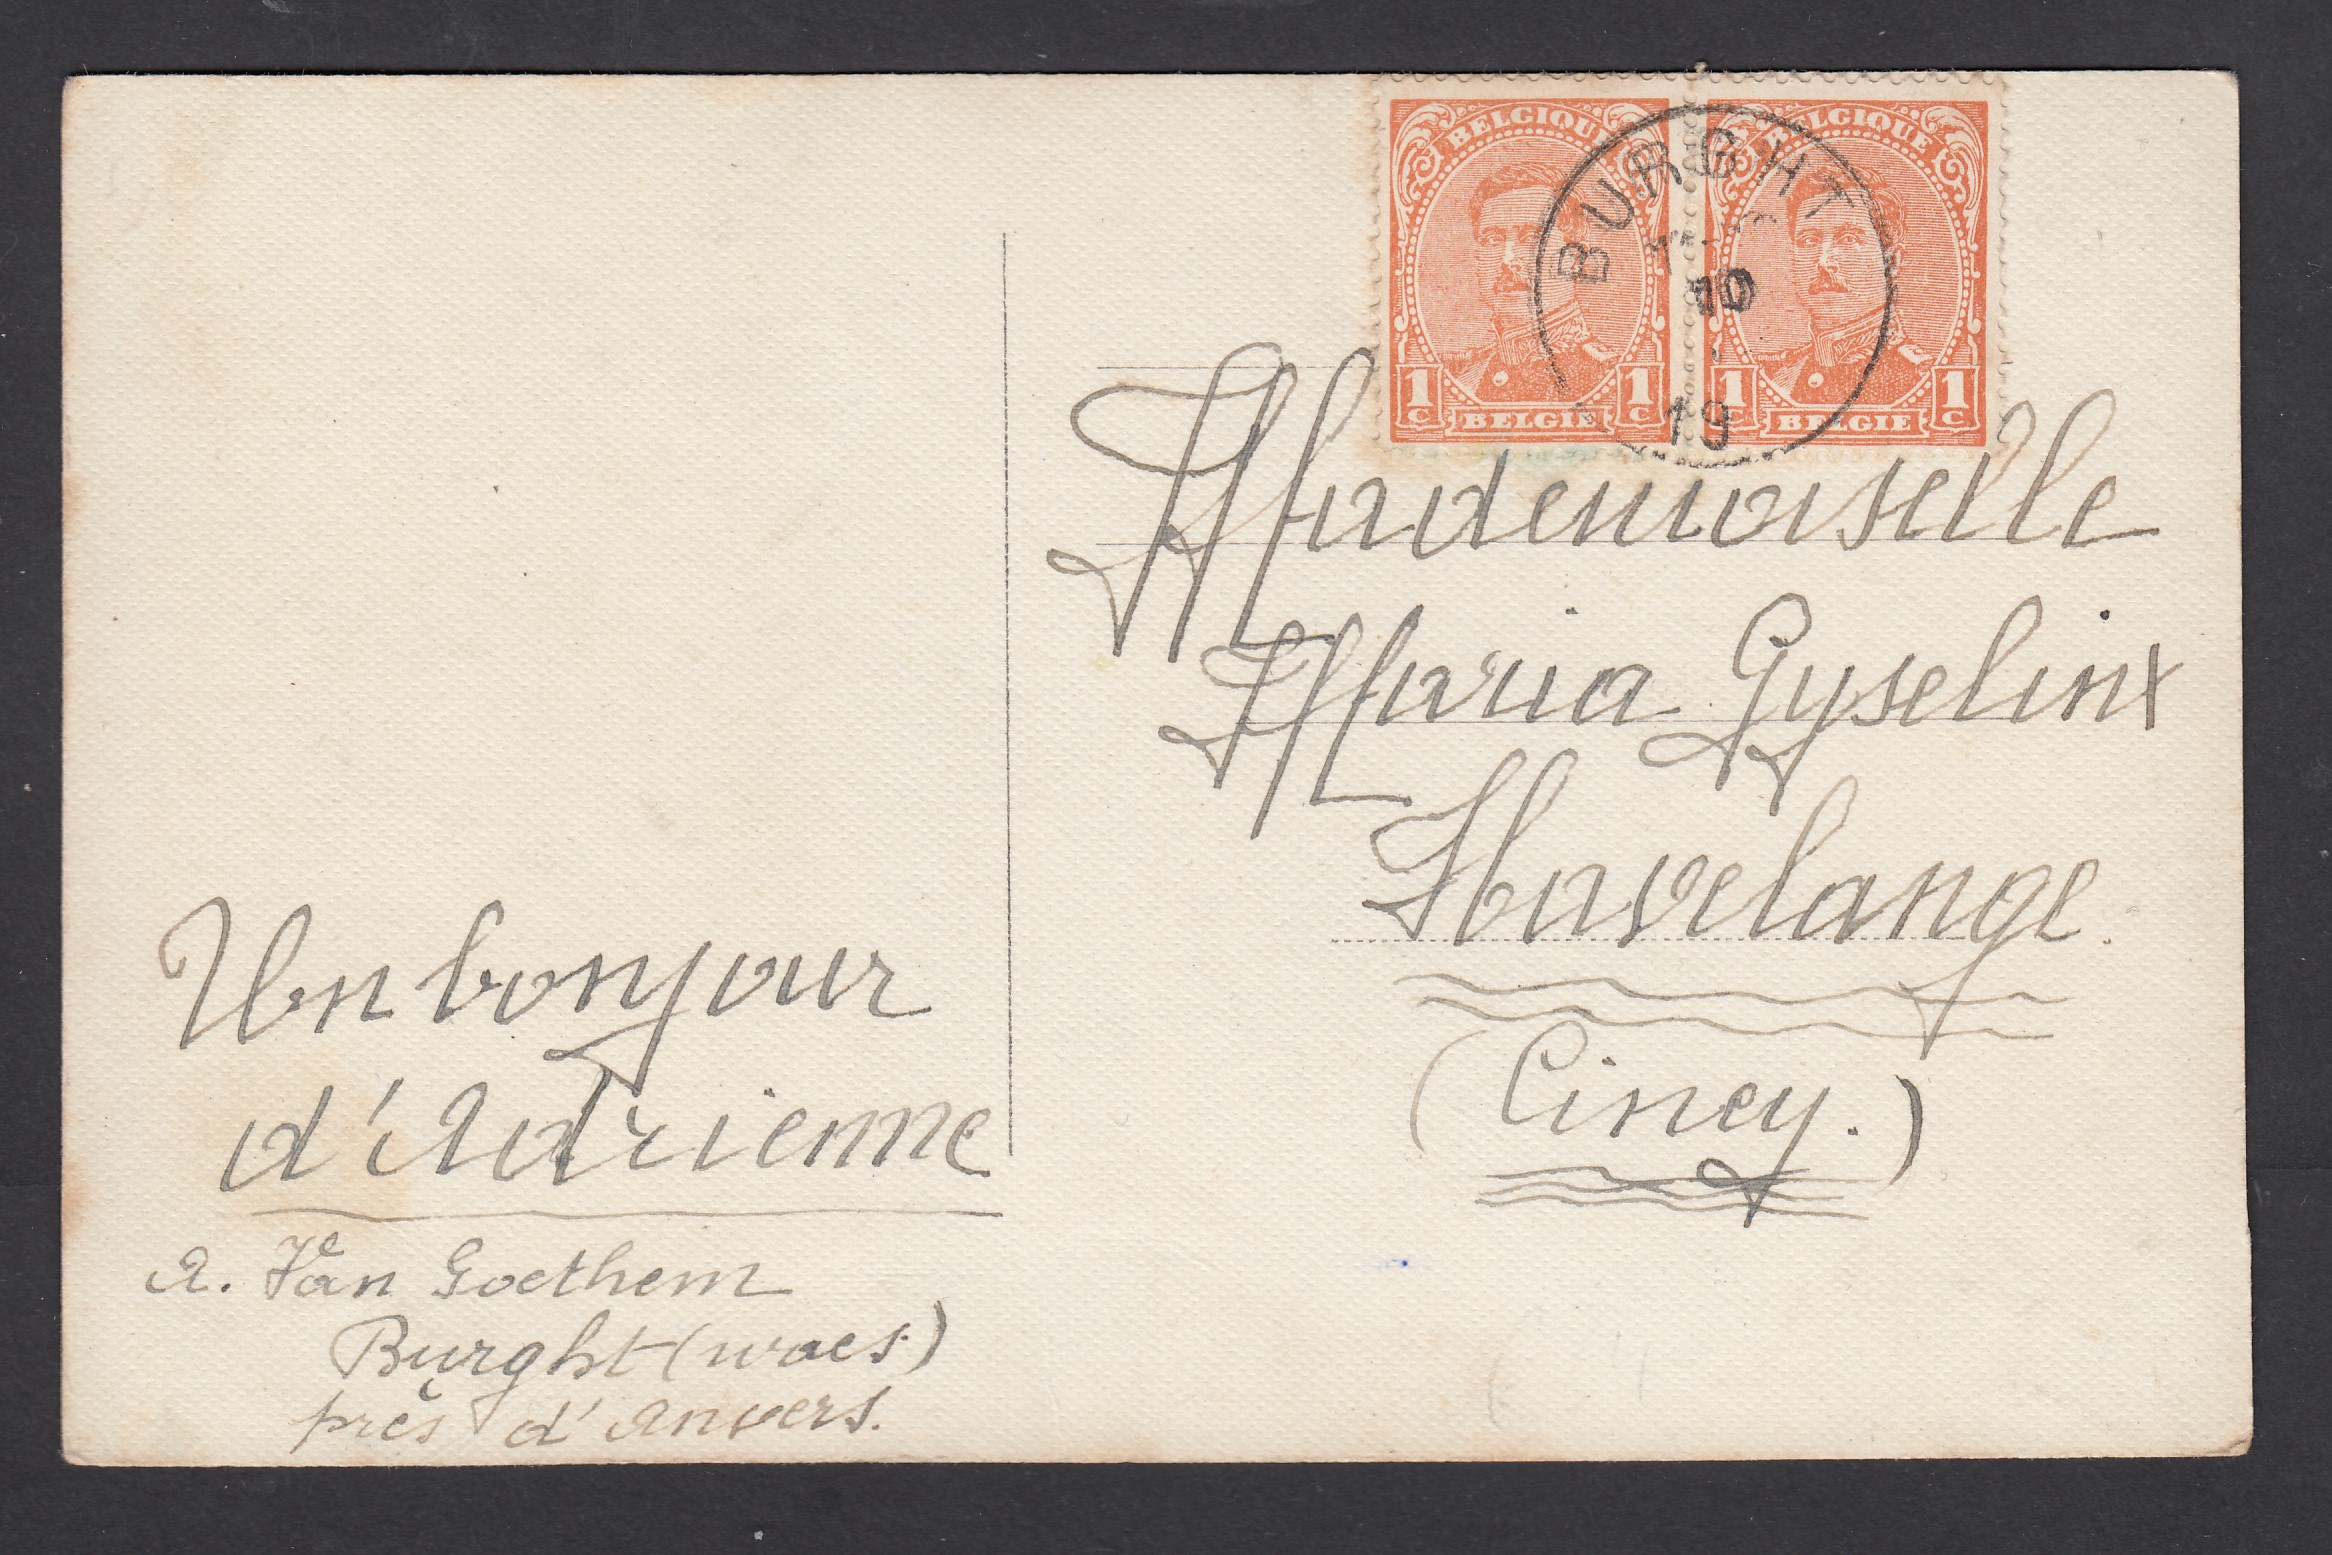 BELGIQUE BELGIQUE
BURGHT
10
19
1c 1c 1c 1c
BELGIË BELGIË
Mademoiselle
Maria Gyselinx
Havelange.
(Ciney.)
Un bonjour
d'Adrienne
A. Van Goethem
Burght (waes)
près d'Anvers.